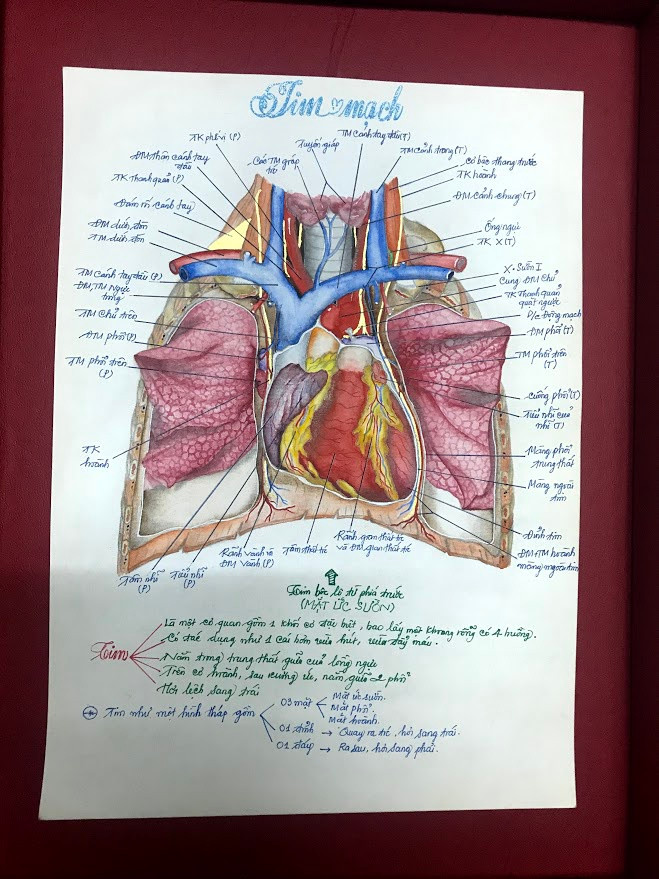 Tim mạch
TK phế vị (P)
ĐM thân cánh tay
đầu
TK Thanh quản (P)
Đám rối cánh tay
ĐM dưới đòn
TM dưới đòn
TM cánh tay đầu (P)
ĐM, TM ngực
trong
TM Chủ trên
ĐM phổi (P)
TM phổi trên
(P)
TK
hoành
Tâm nhĩ
(P)
Tiểu nhĩ
(P)
Rãnh vành và
ĐM vành (P)
Tâm thất
Rãnh gian thất
và ĐM gian thất
Các TM giáp
Tuyến giáp
TM cánh tay đầu (T)
TM cảnh trong (T)
Cơ bậc thang trước
TK hoành
ĐM cảnh chung (T)
Ống ngực
TK X (T)
X. Sườn I
Cung ĐM Chủ
TK Thanh quản
quặt ngược
D/c Động mạch
ĐM phổi (T)
TM phổi trên
(T)
cuống phổi (T)
Tiểu nhĩ của
nhĩ (T)
Màng phổi
trung thất
Màng ngoài
tim
Đỉnh tim
ĐM TM hoành
màng ngoài tim
Tim bộc lộ từ phía trước
(MẶT ỨC SƯỜN)
Tim
Là một cơ quan gồm 1 khối cơ đặc biệt, bao lấy một khoang rỗng có 4 buồng.
Có tác dụng như 1 cái bơm vừa hút, vừa đẩy máu.
Nằm trong trung thất giữa của lồng ngực
Trên cơ hoành, sau xương ức, nằm giữa 2 phổi
Hơi lệch sang trái
Tim như một hình tháp gồm
03 mặt
Mặt ức sườn.
Mặt phổi.
Mặt hoành.
01 đỉnh → Quay ra trc, hơi sang trái.
01 đáy → Ra sau, hơi sang phải.